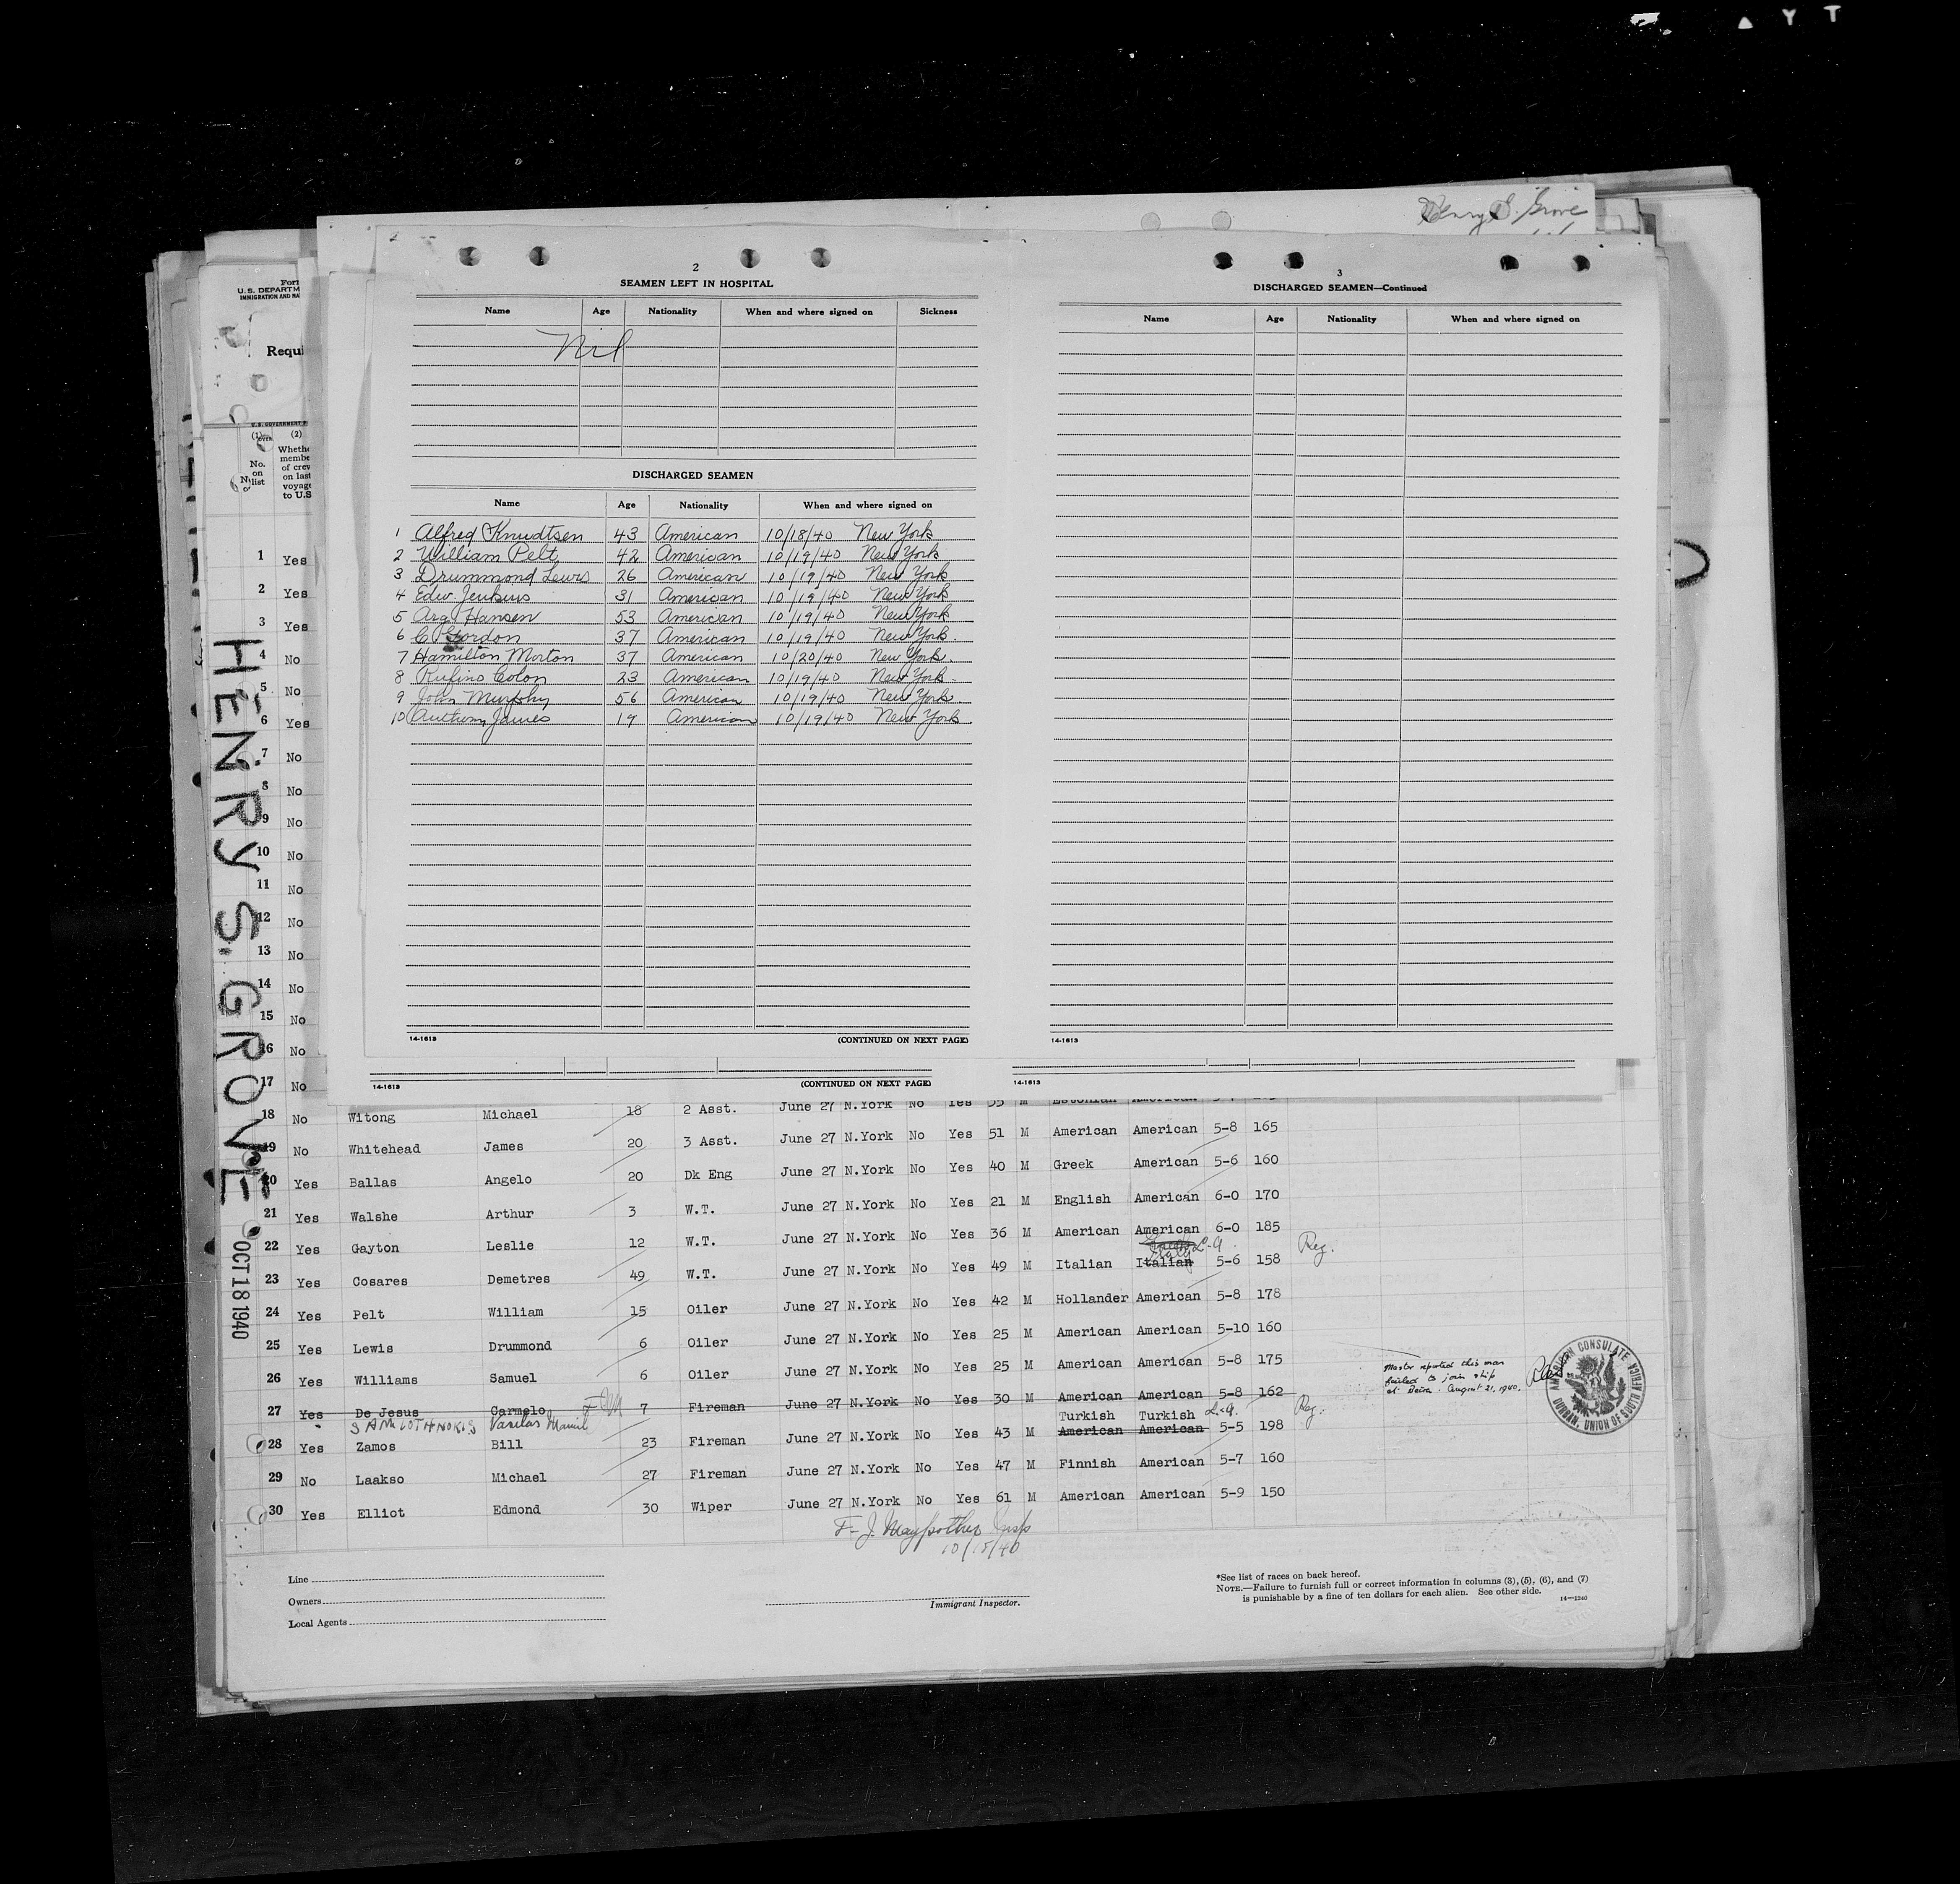 A Y T
Henry S. Grove
2
SEAMEN LEFT IN HOSPITAL
Name Age Nationality When and where signed on Sickness
Nil
DISCHARGED SEAMEN
Name Age Nationality When and where signed on
1 Alfred Knudtsen 43 American 10/18/40 New York
2 William Pelt 42 American 10/19/40 New York
3 Drummond Lewis 26 American 10/19/40 New York
4 Edw. Jenkins 31 American 10/19/40 New York
5 Arg. Hansen 53 American 10/19/40 New York
6 C. Gordon 37 American 10/19/40 New York.
7 Hamilton Morton 37 American 10/20/40 New York.
8 Rufino Colon 23 American 10/19/40 New York.
9 John Murphy 56 American 10/19/40 New York.
10 Anthony James 19 American 10/19/40 New York
14-1613 (CONTINUED ON NEXT PAGE)
3
DISCHARGED SEAMEN—Continued
Name Age Nationality When and where signed on
14-1613
14-1613 (CONTINUED ON NEXT PAGE) 14-1613
U.S. DEPARTM
IMMIGRATION AND NA
Requi
U.S. GOVERNMENT
(1) (2)
No. on list
Wheth
membe
of crev
on last
voyage
to U.S
1 Yes
2 Yes
3 Yes
4 No
5 No
6 Yes
7 No
8 No
9 No
10 No
11 No
12 No
13 No
14 No
15 No
16 No
17 No
18 No Witong Michael 18 2 Asst. June 27 N.York No Yes 55 M Estonian American
19 No Whitehead James 20 3 Asst. June 27 N.York No Yes 51 M American American 5-8 165
20 Yes Ballas Angelo 20 Dk Eng June 27 N.York No Yes 40 M Greek American 5-6 160
21 Yes Walshe Arthur 3 W.T. June 27 N.York No Yes 21 M English American 6-0 170
22 Yes Gayton Leslie 12 W.T. June 27 N.York No Yes 36 M American American 6-0 185
Italy L-9. Reg.
23 Yes Cosares Demetres 49 W.T. June 27 N.York No Yes 49 M Italian Italian 5-6 158
24 Yes Pelt William 15 Oiler June 27 N.York No Yes 42 M Hollander American 5-8 178
25 Yes Lewis Drummond 6 Oiler June 27 N.York No Yes 25 M American American 5-10 160
26 Yes Williams Samuel 6 Oiler June 27 N.York No Yes 25 M American American 5-8 175
Master reported this man
failed to join ship
at Beira. August 21, 1940.
AMERICAN CONSULATE
DURBAN, UNION OF SOUTH AFRICA
27 Yes De Jesus Carmelo 7 Fireman June 27 N.York No Yes 30 M American American 5-8 162
SAMLOTHNOKIS Vasilas Turkish Turkish L-9. Reg.
28 Yes Zamos Bill 23 Fireman June 27 N.York No Yes 43 M American American 5-5 198
29 No Laakso Michael 27 Fireman June 27 N.York No Yes 47 M Finnish American 5-7 160
30 Yes Elliot Edmond 30 Wiper June 27 N.York No Yes 61 M American American 5-9 150
F. J. Maypother Insp
10/18/40
Line
Owners
Local Agents
Immigrant Inspector.
*See list of races on back hereof.
NOTE.—Failure to furnish full or correct information in columns (3), (5), (6), and (7)
is punishable by a fine of ten dollars for each alien. See other side.
14—1240
HENRY S. GROVE
OCT 18 1940